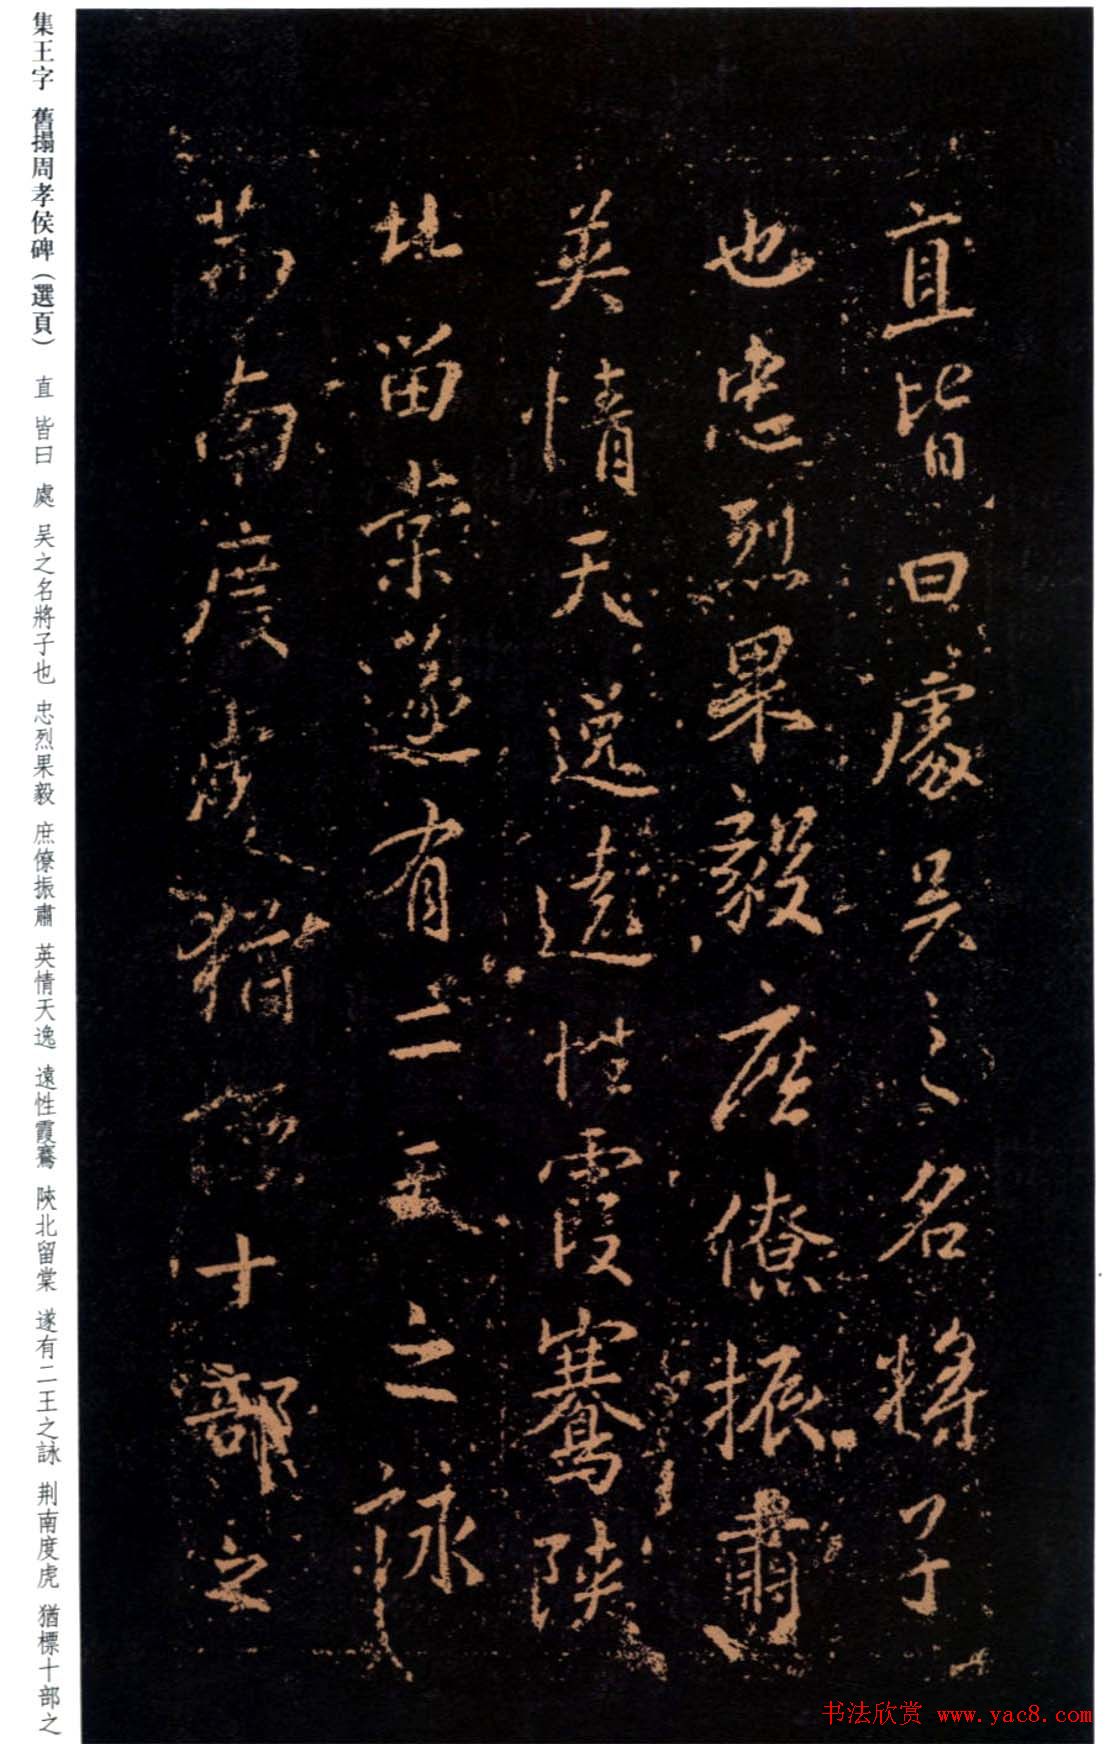 直皆曰處吴之名將子
也忠烈果毅庶僚振肅
英情天逸遠性霞鶱陝
北留棠遂有二王之詠
荆南度虎猶標十部之
集王字 舊搨周孝侯碑（選頁） 直 皆曰 處 吴之名將子也 忠烈果毅 庶僚振肅 英情天逸 遠性霞鶱 陝北留棠 遂有二王之詠 荆南度虎 猶標十部之
书法欣赏 www.yac8.com